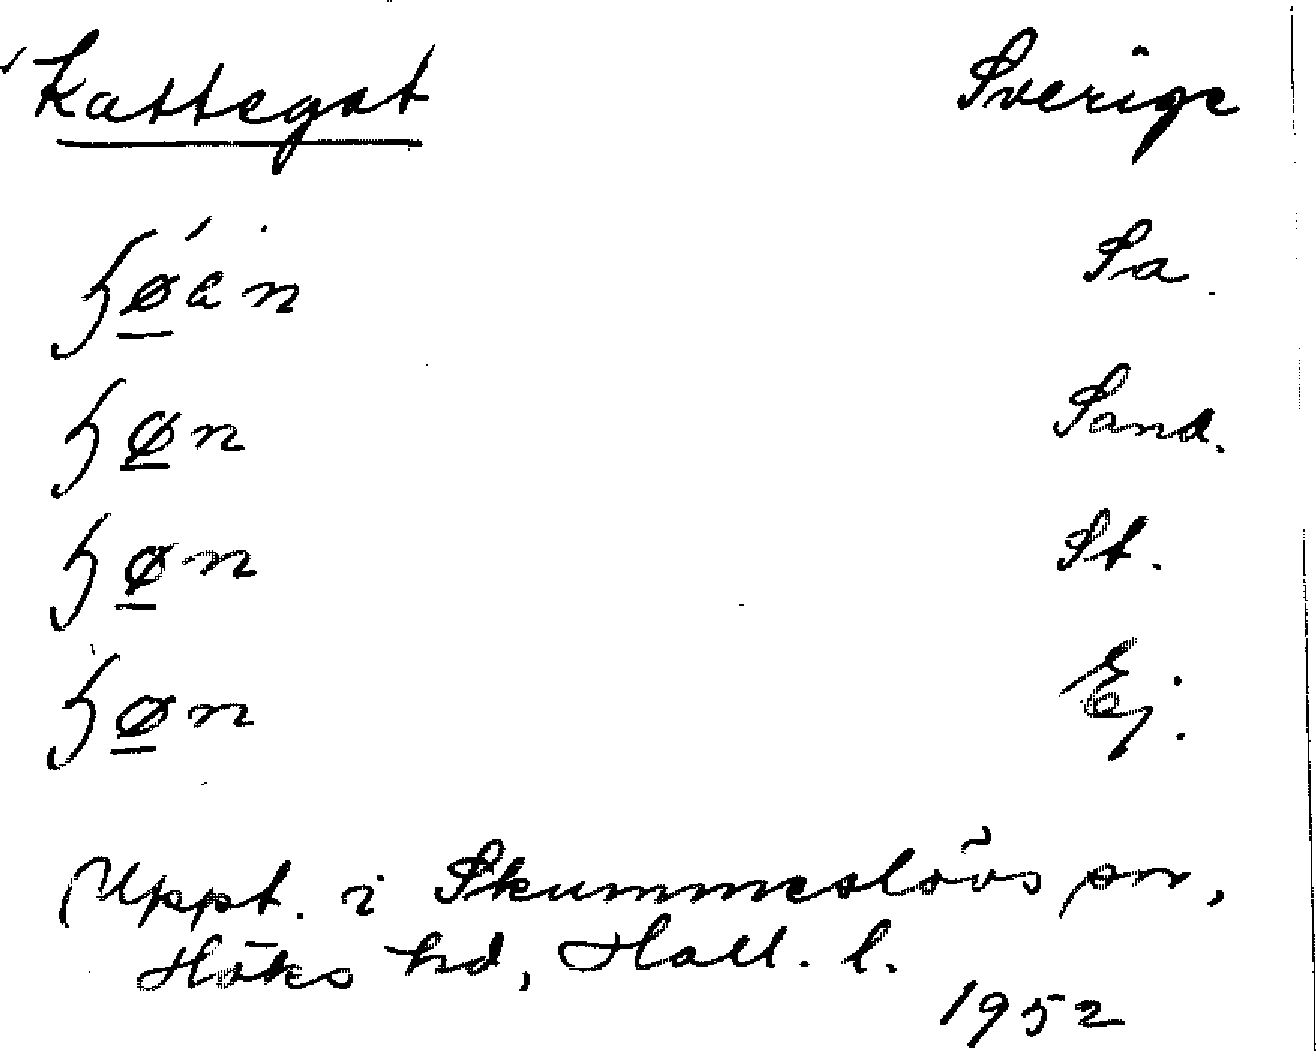 Kattegat Sverige
ʃǿ̲ən Sa.
ʃø̲n Sand.
ʃø̲n St.
ʃø̲n Ej.
Uppt. i Skummeslövs sn,
Höks hd, Hall. l.
1952